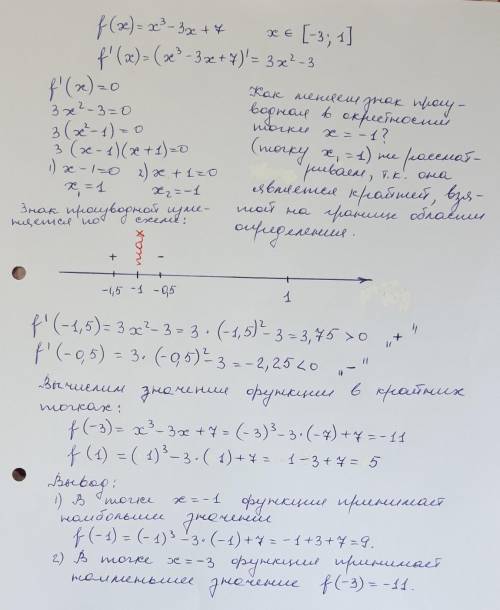 f(x) = x³ - 3x + 7    x ∈ [-3; 1]
f'(x) = (x³ - 3x + 7)' = 3x² - 3
f'(x) = 0
3x² - 3 = 0
3(x² - 1) = 0
3(x - 1)(x + 1) = 0
1) x - 1 = 0    2) x + 1 = 0
x₁ = 1    x₂ = -1
Знак производной изме-
няется по схеме:
Как меняет знак произ-
водная в окрестности
точки x = -1?
(точку x₁ = 1) не рассмат-
риваем, т.к. она
является крайней, взя-
той на границе области
определения.
max
+    -
-1,5    -1    -0,5    1
f'(-1,5) = 3x² - 3 = 3·(-1,5)² - 3 = 3,75 > 0    „+"
f'(-0,5) = 3·(-0,5)² - 3 = -2,25 < 0    „-"
Вычислим значения функции в крайних
точках:
f(-3) = x³ - 3x + 7 = (-3)³ - 3·(-7) + 7 = -11
f(1) = (1)³ - 3·(1) + 7 = 1 - 3 + 7 = 5
Вывод:
1) В точке x = -1 функция принимает
наибольшее значение
f(-1) = (-1)³ - 3·(-1) + 7 = -1 + 3 + 7 = 9.
2) В точке x = -3 функция принимает
наименьшее значение f(-3) = -11.